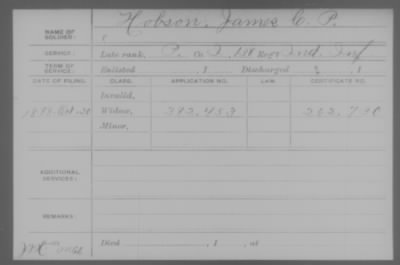 NAME OF SOLDIER: Hobson, James C. P.
SERVICE: Late rank, P. Co. Reg't Ind. Inf.
TERM OF SERVICE: Enlisted , 1 Discharged , 1
DATE OF FILING. CLASS. APPLICATION NO. LAW. CERTIFICATE NO.
Invalid,
Widow, 382,453
Minor,
ADDITIONAL SERVICES:
REMARKS:
Died , 1 , at